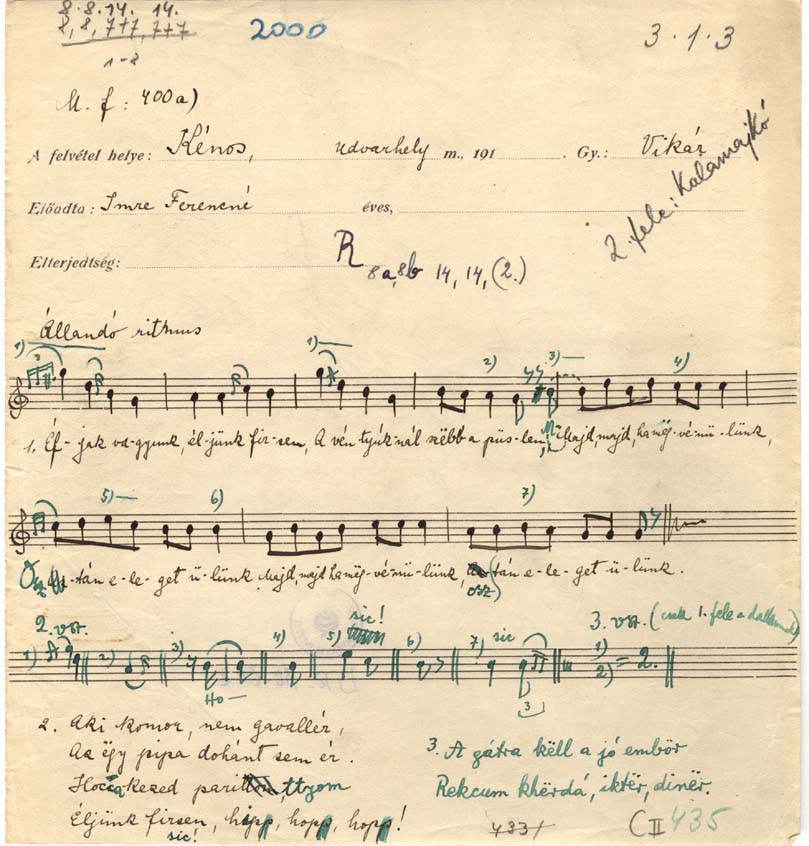 8. 8. 14. 14.
8, 8, 7+7, 7+7
1-8
2000
3.1.3
M. f: 400a)
A felvétel helye: Kénos, Udvarhely m., 191 . Gy.: Vikár
Előadta: Imre Ferencné éves,
2. fele: Kalamajkó
Elterjedtség:
R 8a, 8b 14, 14, (2.)
Állandó rithmus
1) 1) 2) 3) 4)
3
1. Éf-jak va-gyunk, él-jünk fir-sen, A vén tyúk-nál szëbb a püs-len, Majd, majd, ha mëg-vé-nü-lünk,
5) 6) 7)
Osz-tán e-le-get ü-lünk Majd, majd ha mëg-vé-nü-lünk, osz-tán e-le-get ü-lünk.
2. vsz. sic! 3. vsz. (csak 1. fele a dallamnak)
1) 2) 3) 4) 5) 6) 7) sic 1) 2) = 2.
Ho-
3
2. Aki komor, nem gavallér,
Az ëgy pipa dohánt sem ér.
Hocca kezed parittyom
Éljünk firsen, hipp, hopp, hopp!
sic!
3. A gátra këll a jó embör
Rekcum khërdá, iktër, dinër.
433/ C II 435